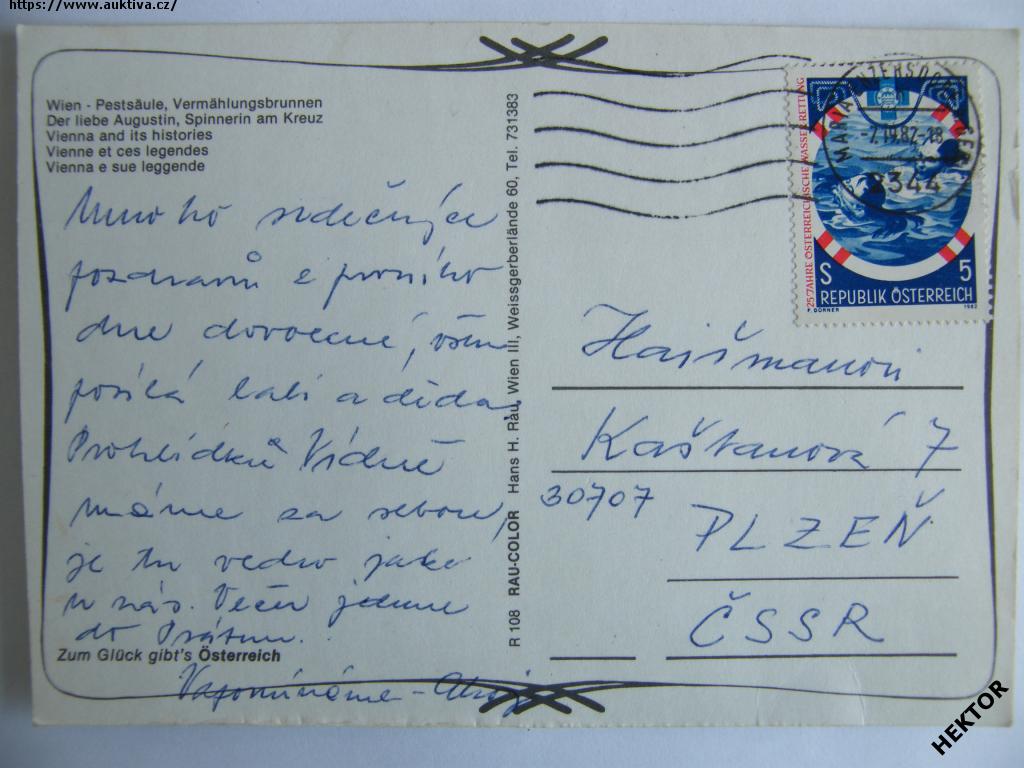 https://www.auktiva.cz/
Wien - Pestsäule, Vermählungsbrunnen
Der liebe Augustin, Spinnerin am Kreuz
Vienna and its histories
Vienne et ces legendes
Vienna e sue leggende
Mnoho srdečných
pozdravů z prvního
dne dovolené, všem
posílá babi a děda,
Prohlídku Vídně
máme za sebou,
je tu vedro jako
u nás. Večer jedeme
do Prátru.
Zum Glück gibt's Österreich
Vzpomínáme - Ahoj
R 108 RAU-COLOR Hans H. Rau, Wien III, Weissgerberlände 60, Tel. 731383
25 JAHRE ÖSTERREICHISCHE WASSER-RETTUNG
S 5
REPUBLIK ÖSTERREICH
F. DÖRNER 1982
MARIA ENZERSDORF
2344
Hajšmanovi
Kaštanová 7
30707 PLZEŇ
ČSSR
HEKTOR